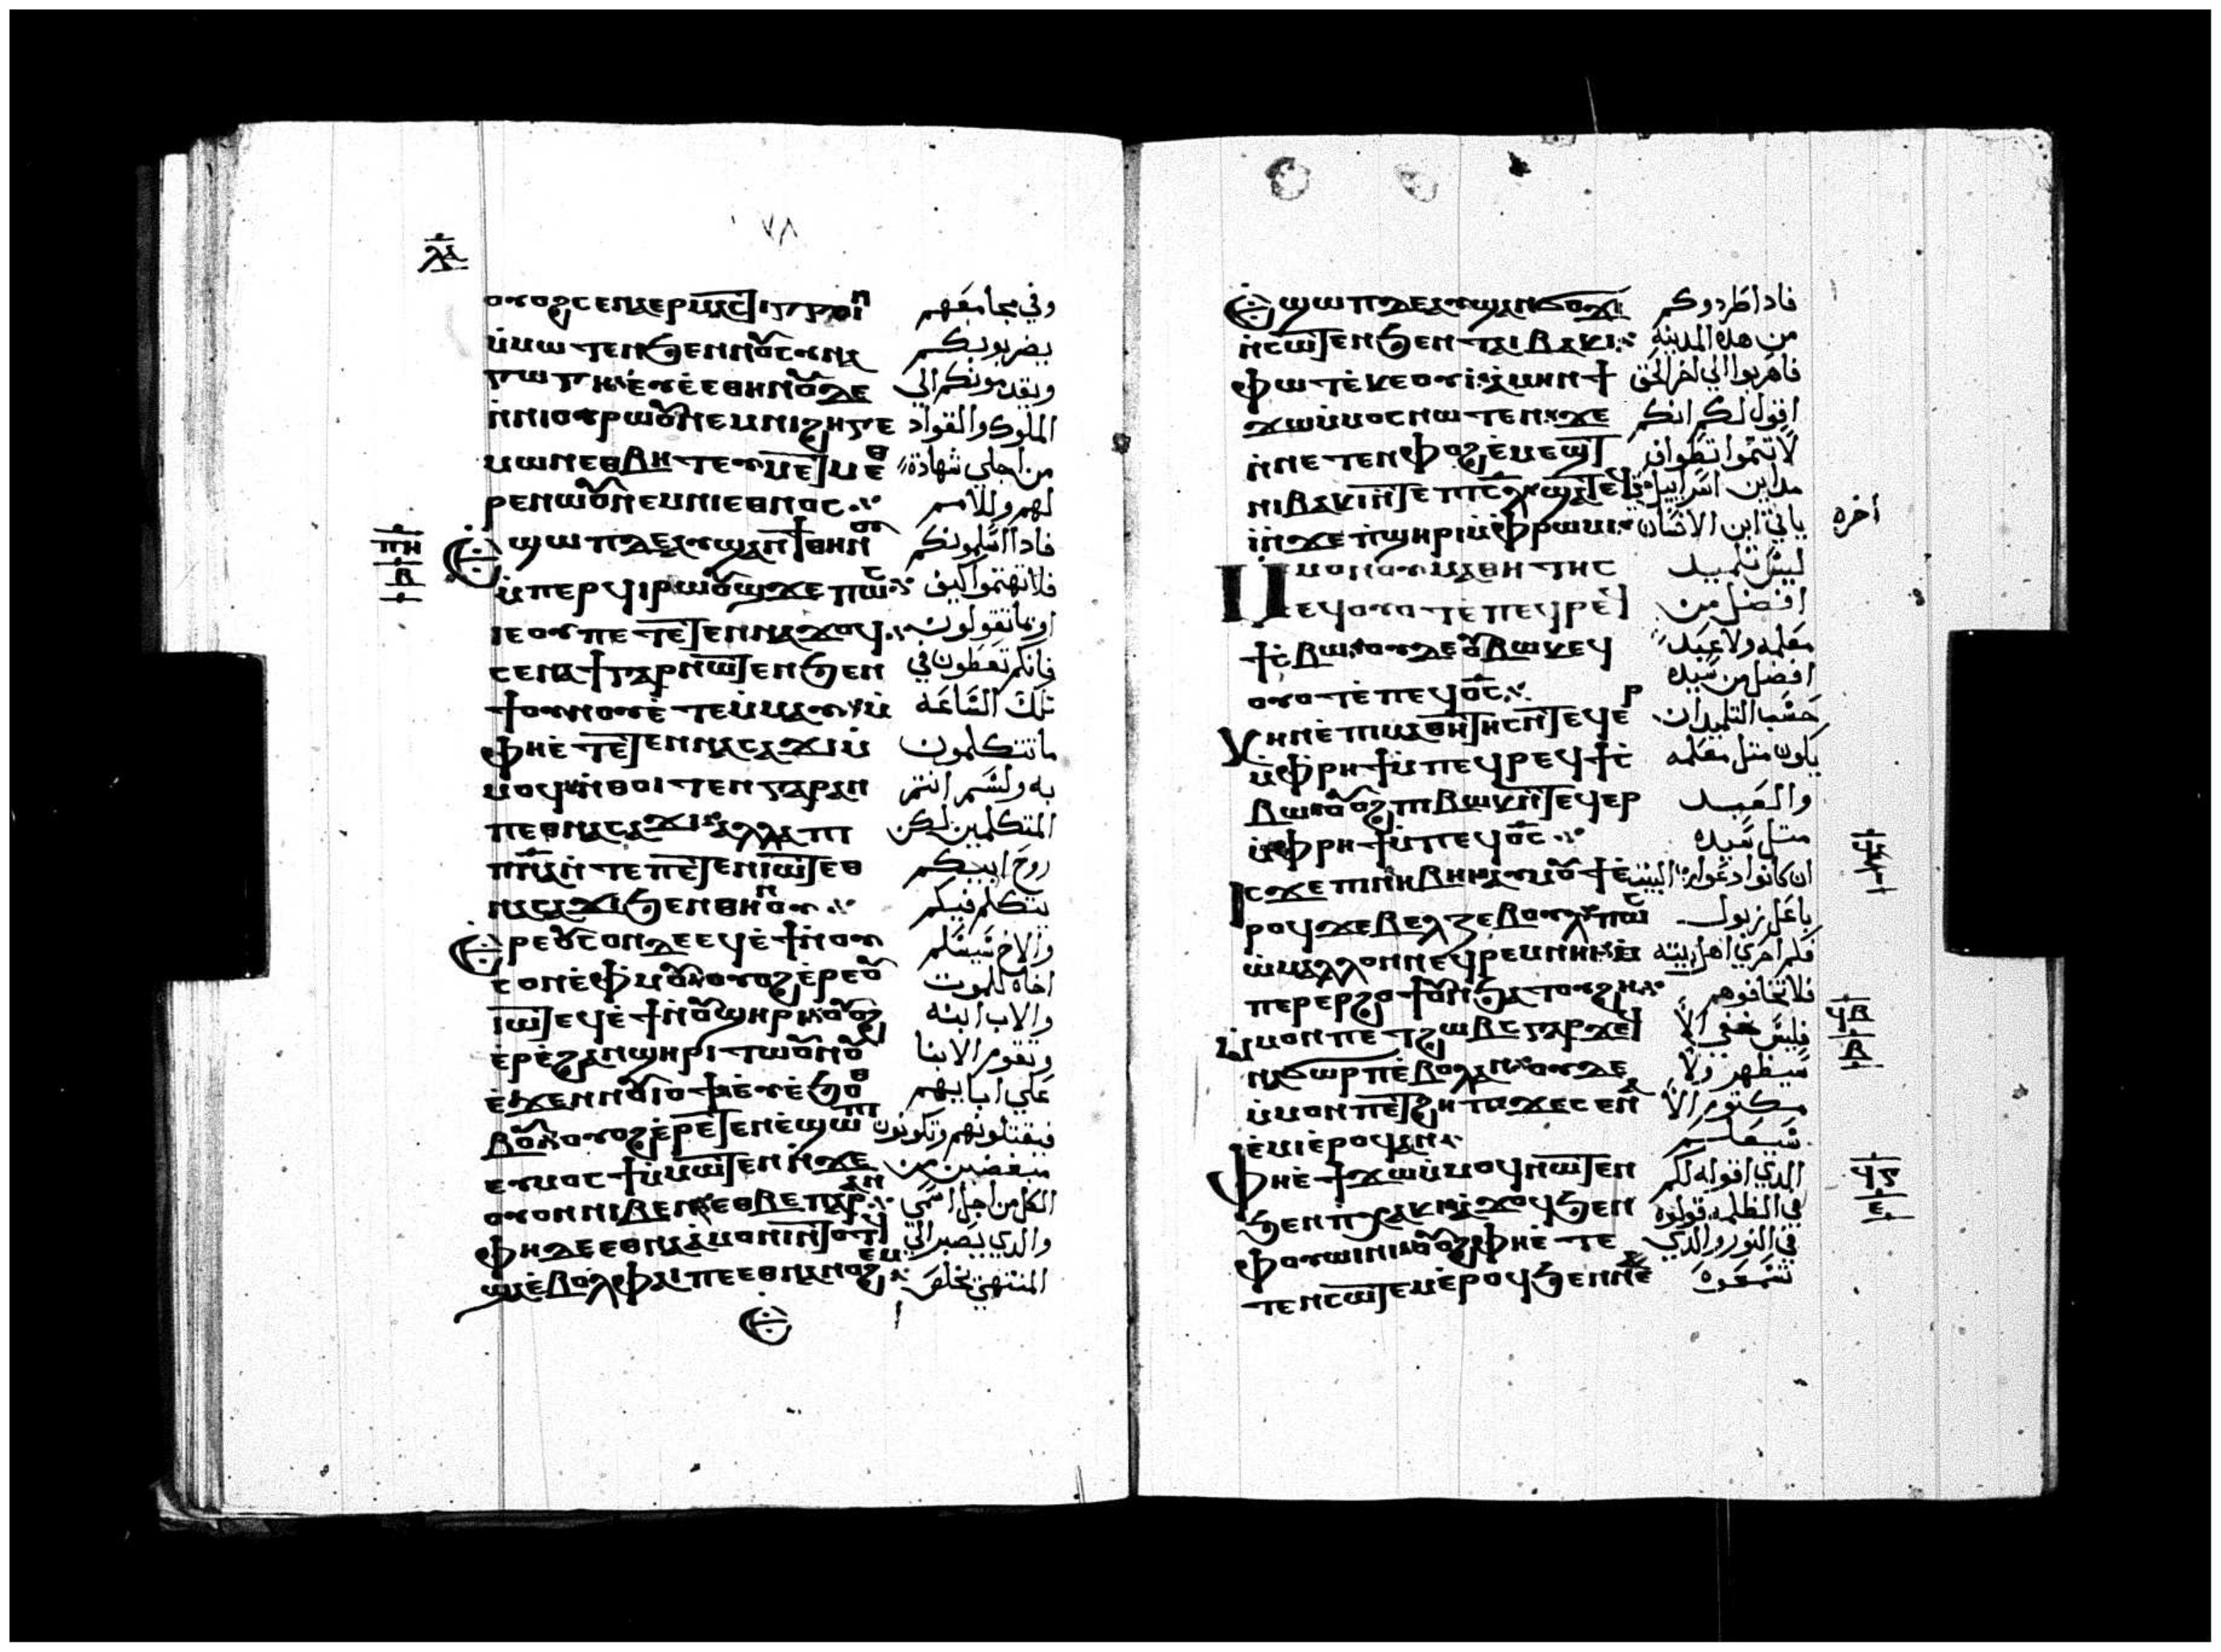 ⲗⲁ
٧٨
ⲟⲩⲟϩ ⲥⲉⲛⲁⲉⲣⲙⲁⲥⲧⲓⲅⲅⲟⲓⲛ وفي مجامعهم
ⲙ̇ⲙⲱⲧⲉⲛ ϧⲉⲛ ⲛⲟⲩⲥⲩⲛⲁ يضربونكم
ⲅⲱⲅⲏ ⲉⲩⲉ̇ⲉⲛ ⲑⲏⲛⲟⲩ ⲇⲉ ويقدمونكم الي
ⲛ̇ⲛⲓⲟⲩⲣⲱⲟⲩ ⲛⲉⲙ ⲛⲓϩⲏⲅⲉ الملوك والقواد
ⲙⲱⲛ ⲉⲑⲃⲏⲧ ⲉⲩⲙⲉⲧⲙⲉⲑ من اجلي شهادة
ⲣⲉ ⲛⲱⲟⲩ ⲛⲉⲙ ⲛⲓⲉⲑⲛⲟⲥ لهم وللامم
ⲡⲏ
ⲃ
ⲉϣⲱⲡ ⲇⲉ ⲁⲩϣⲁⲛϯ ⲑⲏⲛⲟⲩ فاذا اسلمونكم
ⲙ̇ⲡⲉⲣϥⲓⲣⲱⲟⲩϣ ϫⲉ ⲡⲱⲥ فلا تهتموا كيف
ⲓⲉ ⲟⲩ ⲡⲉⲧⲉⲧⲉⲛⲛⲁϫⲟϥ او بما تقولون
ⲥⲉⲛⲁϯ ⲅⲁⲣ ⲛⲱⲧⲉⲛ ϧⲉⲛ فانكم تعطون في
ϯⲟⲩⲛⲟⲩ ⲉ̇ⲧⲉⲙ̇ⲙⲁⲩ ⲙ̇ تلك الساعه
ⲫⲏ ⲉ̇ⲧⲉⲧⲉⲛⲛⲁⲥⲁϫⲓ ⲙ̇ ما تتكلمون
ⲙⲟϥ ⲛ̇ⲑⲱⲧⲉⲛ ⲅⲁⲣ ⲁⲛ به ولستم انتم
ⲡⲉⲑⲛⲁⲥⲁϫⲓ ⲁⲗⲗⲁ ⲡⲓ المتكلمين لكن
ⲡⲛⲁ ⲛ̇ⲧⲉ ⲡⲉⲧⲉⲛⲓⲱⲧ ⲉⲑ روح ابيكم
ⲛⲁⲥⲁϫⲓ ϧⲉⲛ ⲑⲏⲛⲟⲩ يتكلم فيكم
ⲉⲣⲉ ⲟⲩⲥⲟⲛ ⲇⲉ ⲉϥⲉ̇ϯ ⲛ̇ⲟⲩ والاخ سيسلم
ⲥⲟⲛ ⲉ̇ⲫⲙⲟⲩ ⲟⲩⲟϩ ⲉ̇ⲣⲉ ⲟⲩ اخاه للموت
ⲓⲱⲧ ⲉϥⲉ̇ϯ ⲛ̇ⲟⲩϣⲏⲣⲓ ⲟⲩⲟϩ والاب ابنه
ⲉ̇ⲣⲉ ϩⲁⲛϣⲏⲣⲓ ⲧⲱⲟⲩⲛⲟⲩ وتقوم الابنا
ⲉ̇ϫⲉⲛ ⲛⲟⲩⲓⲟϯ ⲉⲩⲉ̇ϧⲟⲑ علي ابايهم
ⲃⲟⲩ ⲟⲩⲟϩ ⲉ̇ⲣⲉⲧⲉⲛⲉ̇ϣⲱⲡⲓ فيقتلونهم وتكونون
ⲉⲩⲙⲟⲥϯ ⲙ̇ⲙⲱⲧⲉⲛ ⲛ̇ϫⲉ مبغضين من
ⲟⲩⲟⲛ ⲛⲓⲃⲉⲛ ⲉⲑⲃⲉ ⲡⲁⲣⲁⲛ الكل من اجل اسمي
ⲫⲏ ⲇⲉ ⲉⲑⲛⲁⲁ̇ⲙⲟⲛⲓ ⲛ̇ⲧⲟⲧϥ والذي يصبر الي
ϣⲁ ⲉ̇ⲃⲟⲗ ⲫⲁⲓ ⲡⲉⲑⲛⲁⲛⲟϩⲉⲙ المنتهي يخلص
ⲉϣⲱⲡ ⲇⲉ ⲁⲩϣⲁⲛϭⲟϫⲓ فاذا طردوكم
ⲛ̇ⲥⲱⲧⲉⲛ ϧⲉⲛ ⲧⲁⲓⲃⲁⲕⲓ من هذه المدينه
ⲫⲱⲧ ⲉ̇ⲕⲉⲟⲩⲓ̇ ⲁ̇ⲙⲏⲛ ϯ فاهربوا الي اخرالحق
ϫⲱ ⲙ̇ⲙⲟⲥ ⲛⲱⲧⲉⲛ ϫⲉ اقول لكم انكم
ⲛ̇ⲛⲉⲧⲉⲛⲫⲟϩ ⲉ̇ⲙⲉϣⲧ لا تتموا تطواف
ⲛⲓⲃⲁⲕⲓ ⲛ̇ⲧⲉ ⲡⲓⲥⲗ ϣⲁⲧⲉϥ مداين اسراييل حتي
ⲓ̇ ⲛ̇ϫⲉ ⲡ̇ϣⲏⲣⲓ ⲙ̇ⲫⲣⲱⲙⲓ ياتي ابن الانسان
أخره
ⲙⲙⲟⲛ ⲟⲩⲙⲁⲑⲏⲧⲏⲥ ليس تلميد
ⲉϥⲟⲩⲟⲧ ⲉ̇ⲡⲉϥⲣⲉϥ افضل من
ϯⲥⲃⲱ ⲟⲩⲇⲉ ⲟⲩⲃⲱⲕ ⲉϥ معلمه ولا عبد
ⲟⲩⲟⲧ ⲉ̇ⲡⲉϥⲟ̅ⲥ̅ افضل من سيده
ⲕⲏⲛ ⲉ̇ⲡⲓⲙⲁⲑⲏⲧⲏⲥ ⲛ̇ⲧⲉϥⲉⲣ حسب التلميد ان
ⲙ̇ⲫ̇ⲣⲏϯ ⲙ̇ⲡⲉϥⲣⲉϥϯⲥ يكون متل معلمه
ⲃⲱ ⲟⲩⲟϩ ⲡⲓⲃⲱⲕ ⲛ̇ⲧⲉϥⲉⲣ والعبد
ⲙ̇ⲫⲣⲏϯ ⲙ̇ⲡⲉϥⲟ̅ⲥ̅ متل سيده
ⲓⲥϫⲉ ⲡⲓⲛⲏⲃⲏⲓ ⲁⲩⲙⲟⲩϯ ⲉ̇ ان كانوا دعوا رب البيت
ⲣⲟϥ ϫⲉ ⲃⲉⲗⲍⲉⲃⲟⲩⲗ ⲡⲱⲥ باعل زبول
ⲙⲁⲗⲗⲟⲛ ⲛⲉϥⲣⲉⲙⲛⲏⲓ ⲙ̇ فكم احري اهل بيته
ⲡⲉⲣⲉⲣϩⲟϯ ⲟⲩⲛ ϧⲁⲧⲟⲩϩⲏ فلا تخافوهم
ϥⲃ
ⲃ
ⲙ̇ⲙⲟⲛ ⲡⲉⲧϩⲱⲃⲥ ⲅⲁⲣ ϫⲉ ϥ فليس خفي الا
ⲛⲁϭⲱⲣⲡ ⲉ̇ⲃⲟⲗ ⲁⲛ ⲟⲩⲇⲉ سيظهر ولا
ⲙ̇ⲙⲟⲛ ⲡⲉⲧϩⲏⲡ ϫⲉ ⲥⲉⲛⲁ مكتوم الا
ⲉ̇ⲙⲓ ⲉ̇ⲣⲟϥ ⲁⲛ سيعلم
ⲫⲏ ⲉ̇ϯϫⲱ ⲙ̇ⲙⲟϥ ⲛⲱⲧⲉⲛ الذي اقوله لكم
ϧⲉⲛ ⲡ̇ⲭⲁⲕⲓ ⲁ̇ϫⲟϥ ϧⲉⲛ في الظلمه قولوه
ⲫⲟⲩⲱⲓⲛⲓ ⲟⲩⲟϩ ⲫⲏ ⲉ̇ⲧⲉ في النور والذي
ⲧⲉⲛⲥⲱⲧⲉⲙ ⲉ̇ⲣⲟϥ ϧⲉⲛ ⲛⲉ سمعوه